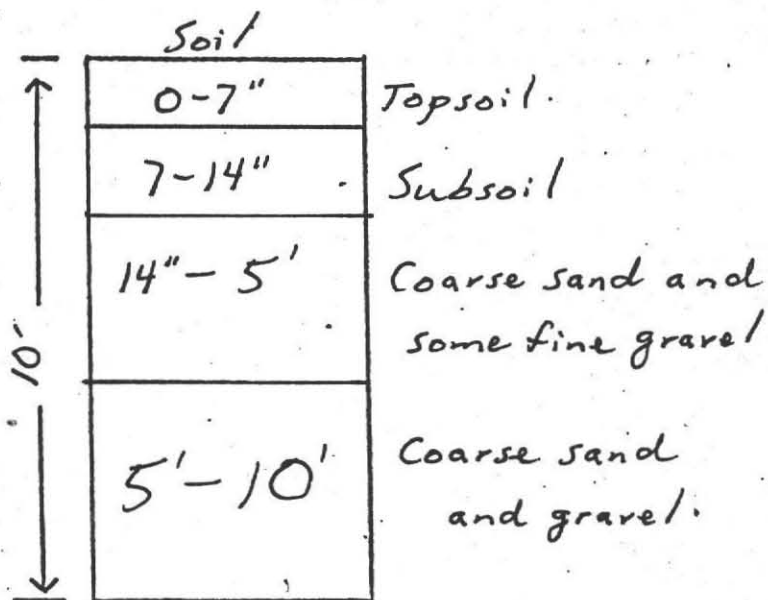 Soil
0-7" Topsoil.
7-14" Subsoil
14"- 5' Coarse sand and
some fine gravel
10'
5'-10' Coarse sand
and gravel.